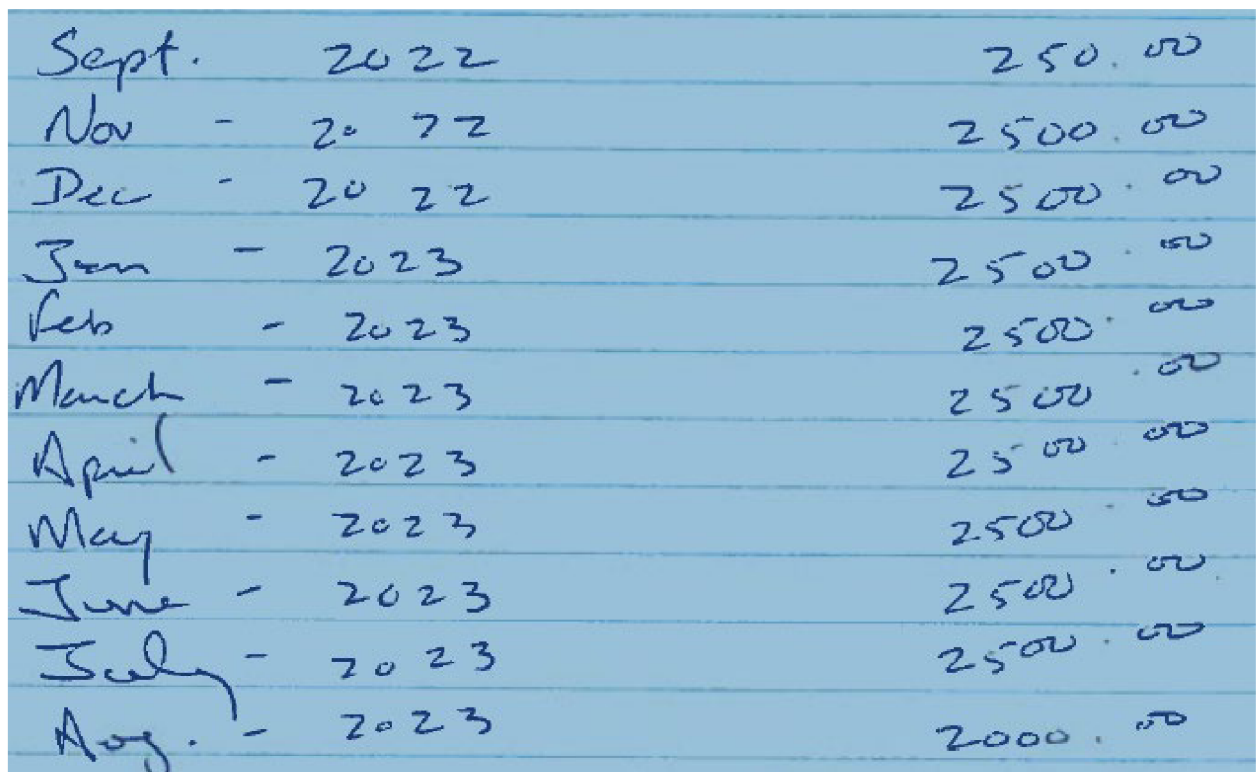 Sept. 2022 250.00
Nov - 2022 2500.00
Dec - 2022 2500.00
Jan - 2023 2500.00
Feb - 2023 2500.00
March - 2023 2500.00
April - 2023 2500.00
May - 2023 2500.00
June - 2023 2500.00
July - 2023 2500.00
Aug. - 2023 2000.00